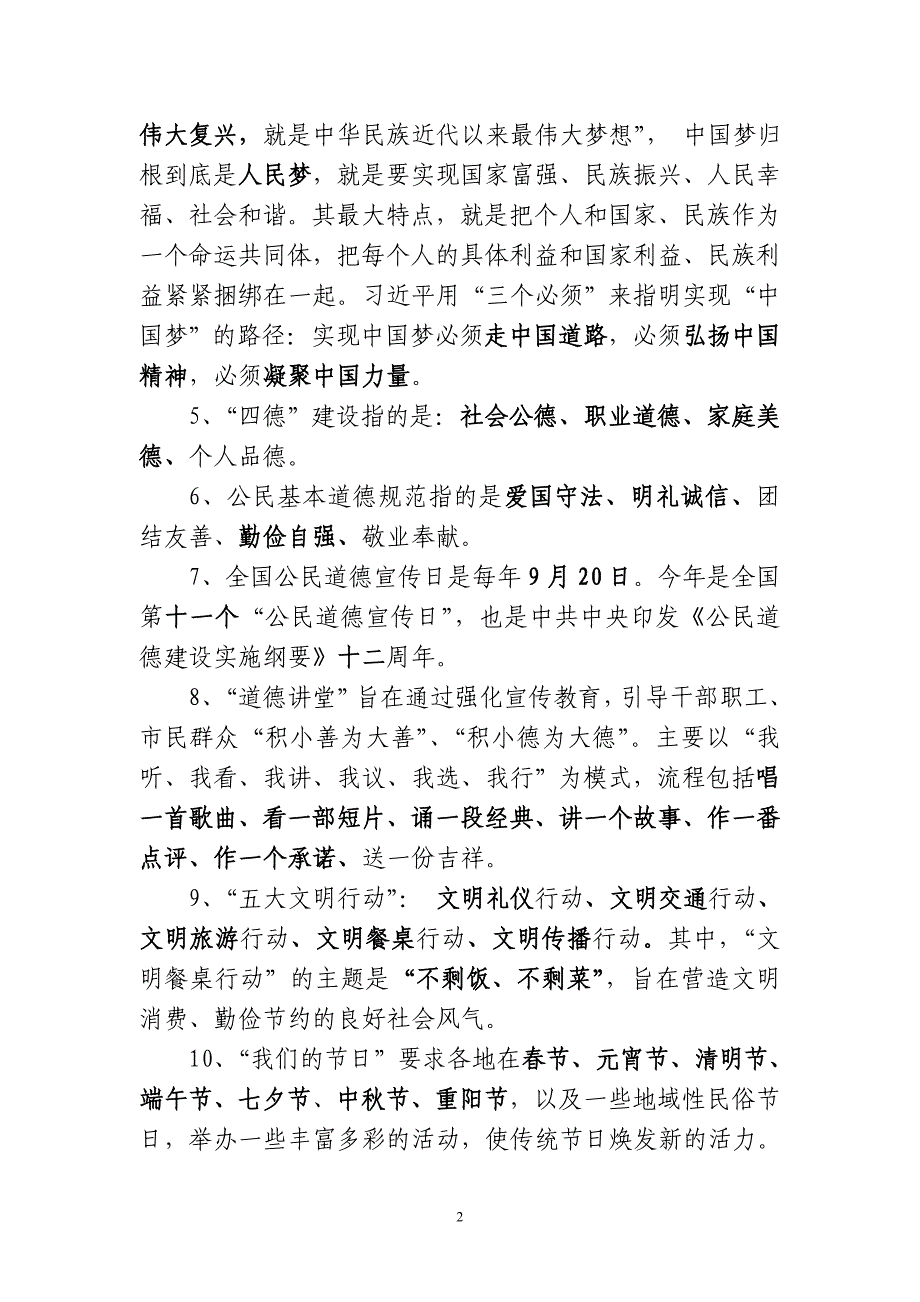 伟大复兴，就是中华民族近代以来最伟大梦想”， 中国梦归
根到底是人民梦，就是要实现国家富强、民族振兴、人民幸
福、社会和谐。其最大特点，就是把个人和国家、民族作为
一个命运共同体，把每个人的具体利益和国家利益、民族利
益紧紧捆绑在一起。习近平用“三个必须”来指明实现“中
国梦”的路径：实现中国梦必须走中国道路，必须弘扬中国
精神，必须凝聚中国力量。
5、“四德”建设指的是：社会公德、职业道德、家庭美
德、个人品德。
6、公民基本道德规范指的是爱国守法、明礼诚信、团
结友善、勤俭自强、敬业奉献。
7、全国公民道德宣传日是每年9月20日。今年是全国
第十一个“公民道德宣传日”，也是中共中央印发《公民道
德建设实施纲要》十二周年。
8、“道德讲堂”旨在通过强化宣传教育，引导干部职工、
市民群众“积小善为大善”、“积小德为大德”。主要以“我
听、我看、我讲、我议、我选、我行”为模式，流程包括唱
一首歌曲、看一部短片、诵一段经典、讲一个故事、作一番
点评、作一个承诺、送一份吉祥。
9、“五大文明行动”： 文明礼仪行动、文明交通行动、
文明旅游行动、文明餐桌行动、文明传播行动。其中，“文
明餐桌行动”的主题是“不剩饭、不剩菜”，旨在营造文明
消费、勤俭节约的良好社会风气。
10、“我们的节日”要求各地在春节、元宵节、清明节、
端午节、七夕节、中秋节、重阳节，以及一些地域性民俗节
日，举办一些丰富多彩的活动，使传统节日焕发新的活力。
2